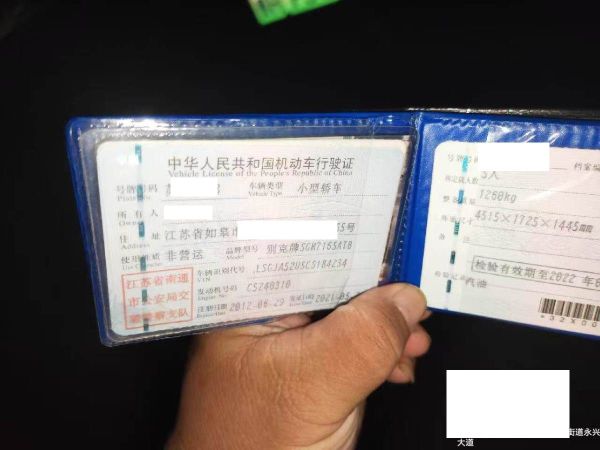 中华人民共和国机动车行驶证
Vehicle License of the People's Republic of China
号牌号码
车辆类型 小型轿车
Vehicle Type
所有人
Owner
住址 江苏省如皋市 号
Address
使用性质 非营运
Use Character
品牌型号 别克牌SGM7165ATB
Model
江苏省南通
市公安局交
警察支队
车辆识别代号
VIN
发动机号码
Engine No.
注册日期 2012-06-29
发证日期 2021-05
号牌号码
档案编
核定载人数 5人
整备质量 1260kg
外廓尺寸 4515×1725×1445mm
备注
检验有效期至2022年
检验记录 汽油
街道永兴
大道